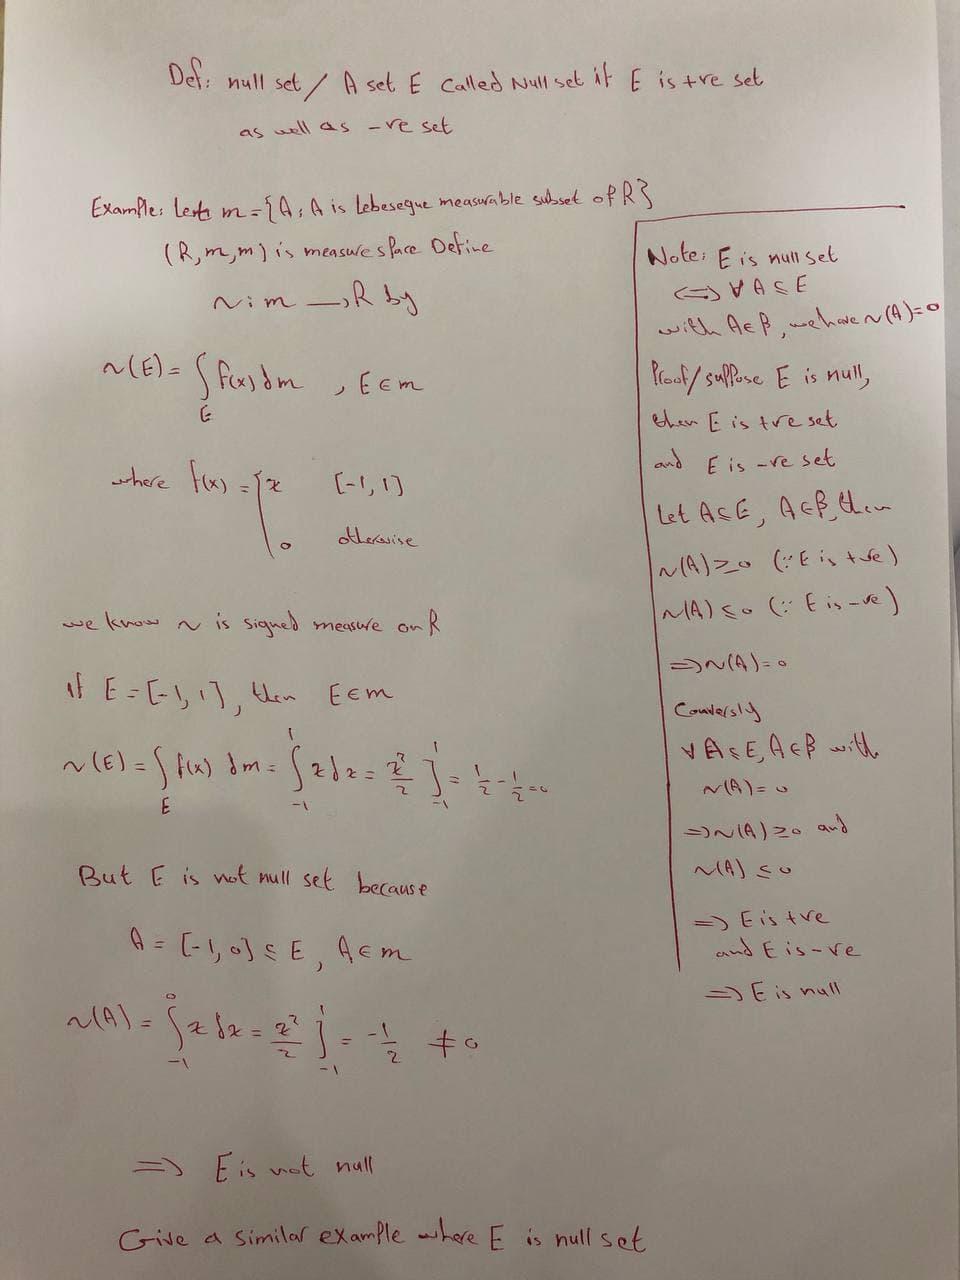 Def: null set / A set E Called Null set if E is +ve set
as well as -ve set
Example: Let m = {A; A is Lebesegue measurable subset of R}
(R, m, m) is measure space Define
ν: m → R by
ν(E) = ∫_E f(x) dm , E ∈ m
where f(x) = { x [-1, 1]
0 otherwise
we know ν is signed measure on R
If E = [-1, 1], then E ∈ m
ν(E) = ∫_E f(x) dm = ∫_{-1}^{1} x dx = x²/2 ]_{-1}^{1} = 1/2 - 1/2 = 0
But E is not null set because
A = [-1, 0] ⊆ E, A ∈ m
ν(A) = ∫_{-1}^{0} x dx = x²/2 ]_{-1}^{1} = -1/2 ≠ 0
⇒ E is not null
Give a similar example where E is null set
Note: E is null set
⇔ ∀ A ⊆ E
with A ∈ β, we have ν(A) = 0
Proof / suppose E is null,
then E is +ve set
and E is -ve set
Let A ⊆ E, A ∈ β, then
ν(A) ≥ 0 (∵ E is +ve)
ν(A) ≤ 0 (∵ E is -ve)
⇒ ν(A) = 0
Conversly
∀ A ⊆ E, A ∈ β with
ν(A) = 0
⇒ ν(A) ≥ 0 and
ν(A) ≤ 0
⇒ E is +ve
and E is -ve
⇒ E is null